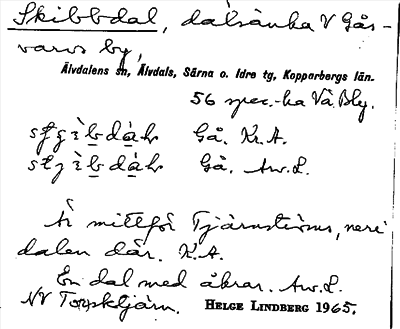 Skibbdal, dalsänka V Gås-
varvs by,
Älvdalens sn, Älvdals, Särna o. Idre tg, Kopparbergs län.
56 spec.-ka Vä. Bly.
Gå. Kr. A.
Gå. Aw. L.
Är mittför Tjärnstëvms, neri
dalen där. K. A.
En dal med åkrar. Aw. L.
NV Torsktjärn. HELGE LINDBERG 1965.